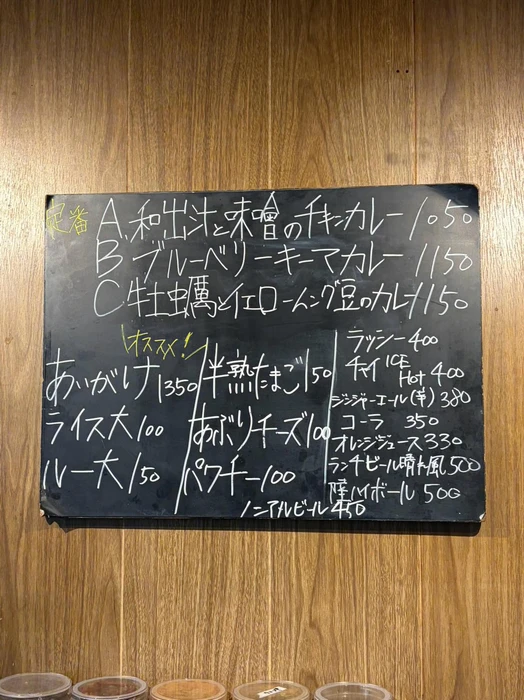 定番 A、和出汁と味噌のチキンカレー 1050
B ブルーベリーキーマカレー 1150
C 牡蠣とイエロームング豆のカレー 1150
オススメ!
あいがけ 1350
ライス大 100
ルー大 150
半熟たまご 150
あぶりチーズ 100
パクチー 100
ノンアルビール 450
ラッシー 400
チャイ ICE Hot 400
ジンジャーエール(辛) 380
コーラ 350
オレンジジュース 330
ランチビール晴れ風 500
陸ハイボール 500